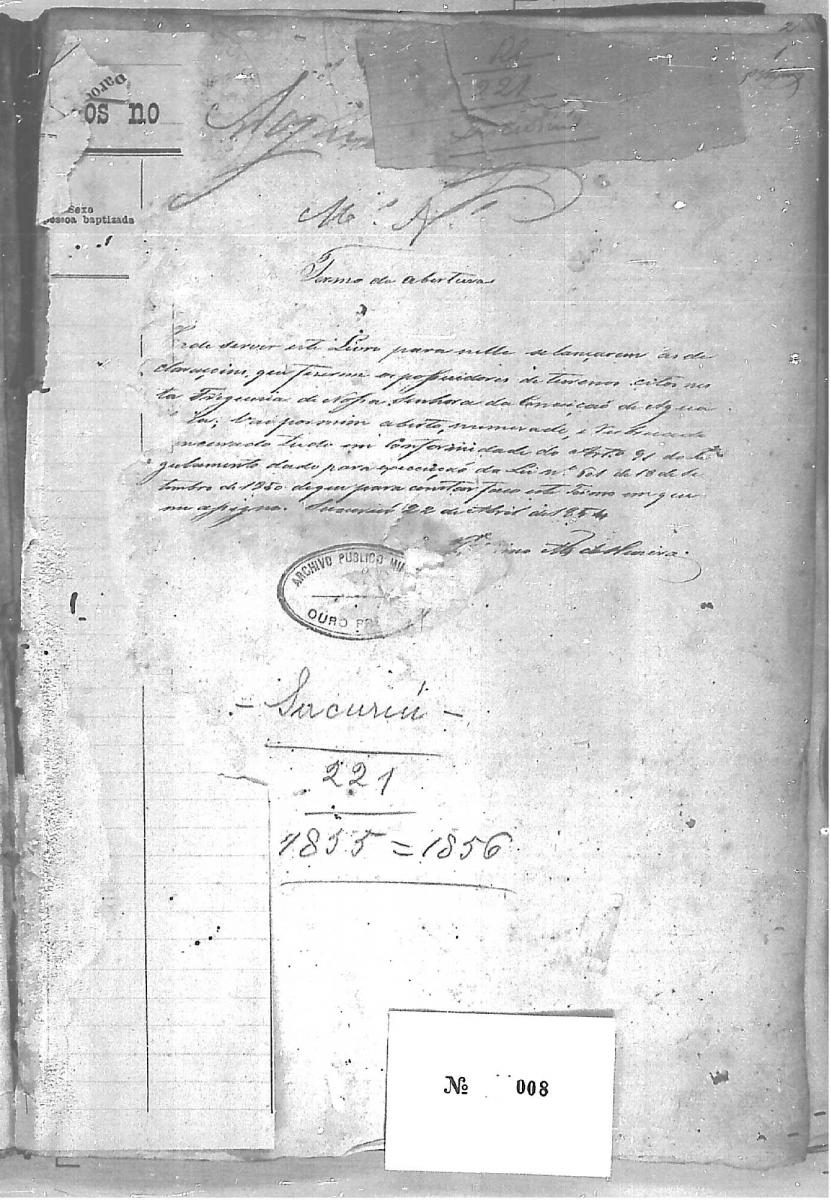 2
1
RP
221
Sucuriú
Paroc
os no
Agua
Sexo
pessoa baptizada
Mᵉˡ A
Termo de abertura
de servir este Livro para nelle se lançarem as de
claraçoins, que fizerem os possuidores de terrenos citos nes
ta Freguezia de Nossa Senhora da Conceicaõ de Agua
Çu; Vai por mim aberto, numerado, e Rubricado
tudo em Conformidade do Artº 91 do Rᵉ
gulamento dado para execuçaõ da Lei nº 601 de 18 de Se
tembro de 1850 de que para constar faco este Termo em que
me assigno. Sucuriú 22 de Abril de 1854
de Oliveira
ARCHIVO PUBLICO MI
OURO PR
- Sucuriú -
221
1855 = 1856
Nº 008